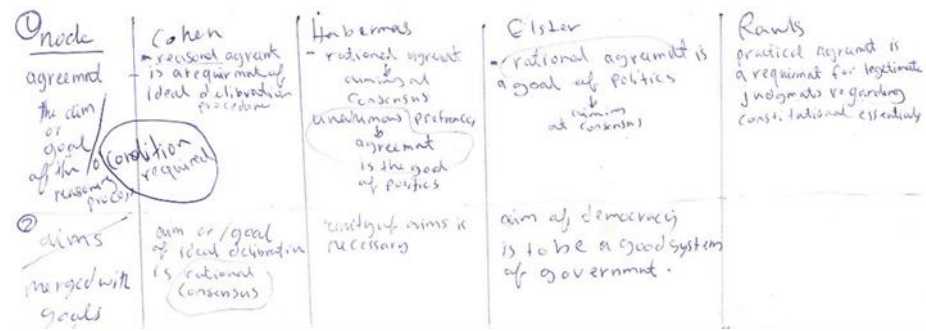 ① node
agreemnt
the aim
or
goal
of the
reasoning
process
condition
required
Cohen
- reasond agreemnt
is a requirmnt of
ideal delibration
procedure
Habermas
- rationed agreemnt
aiming at
consensus
unanimous prefrences
agreemnt
is the goal
of politics
Elster
- rational agreemnt is
a goal of politics
aiming
at consensus
Rawls
practical agreemnt is
a requirmnt for legetimate
judgmets regarding
constitutional essentials
② aims
merged with
goals
aim or/goal
of ideal delibration
is rational
consensus
unity of aims is
necessary
aim of democracy
is to be a good system
of governmnt.